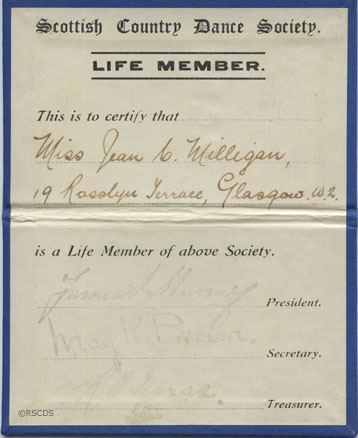 Scottish Country Dance Society.
LIFE MEMBER.
This is to certify that
Miss Jean C. Milligan,
19 Rosslyn Terrace, Glasgow. W.2.
is a Life Member of above Society.
President.
Secretary.
Treasurer.
©RSCDS